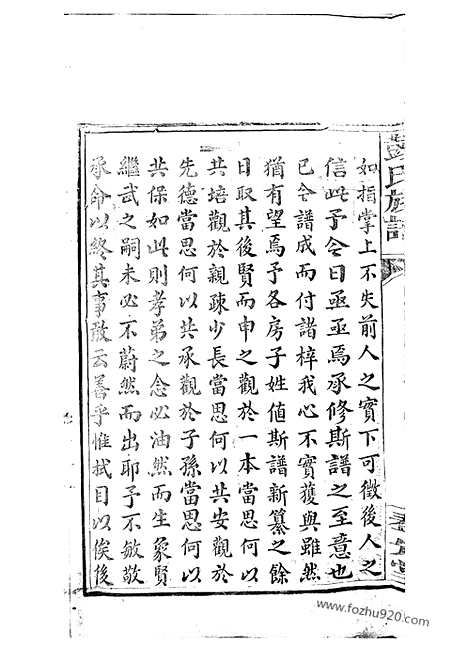 如指掌上不失前人之實下可徵後人之
信此予今日亟亟焉承修斯譜之至意也
已今譜成而付諸梓我心不實獲與雖然
猶有望焉予各房子姓値斯譜新纂之餘
日取其後賢而申之觀於一本當思何以
共培觀於親疎少長當思何以共安觀於
先德當思何以共承觀於子孫當思何以
共保如此則孝弟之念必油然而生象賢
繼武之嗣未必不蔚然而出耶予不敏敬
承命以終其事敢云善乎惟拭目以俟後
彭氏族譜
www.fozhu920.com